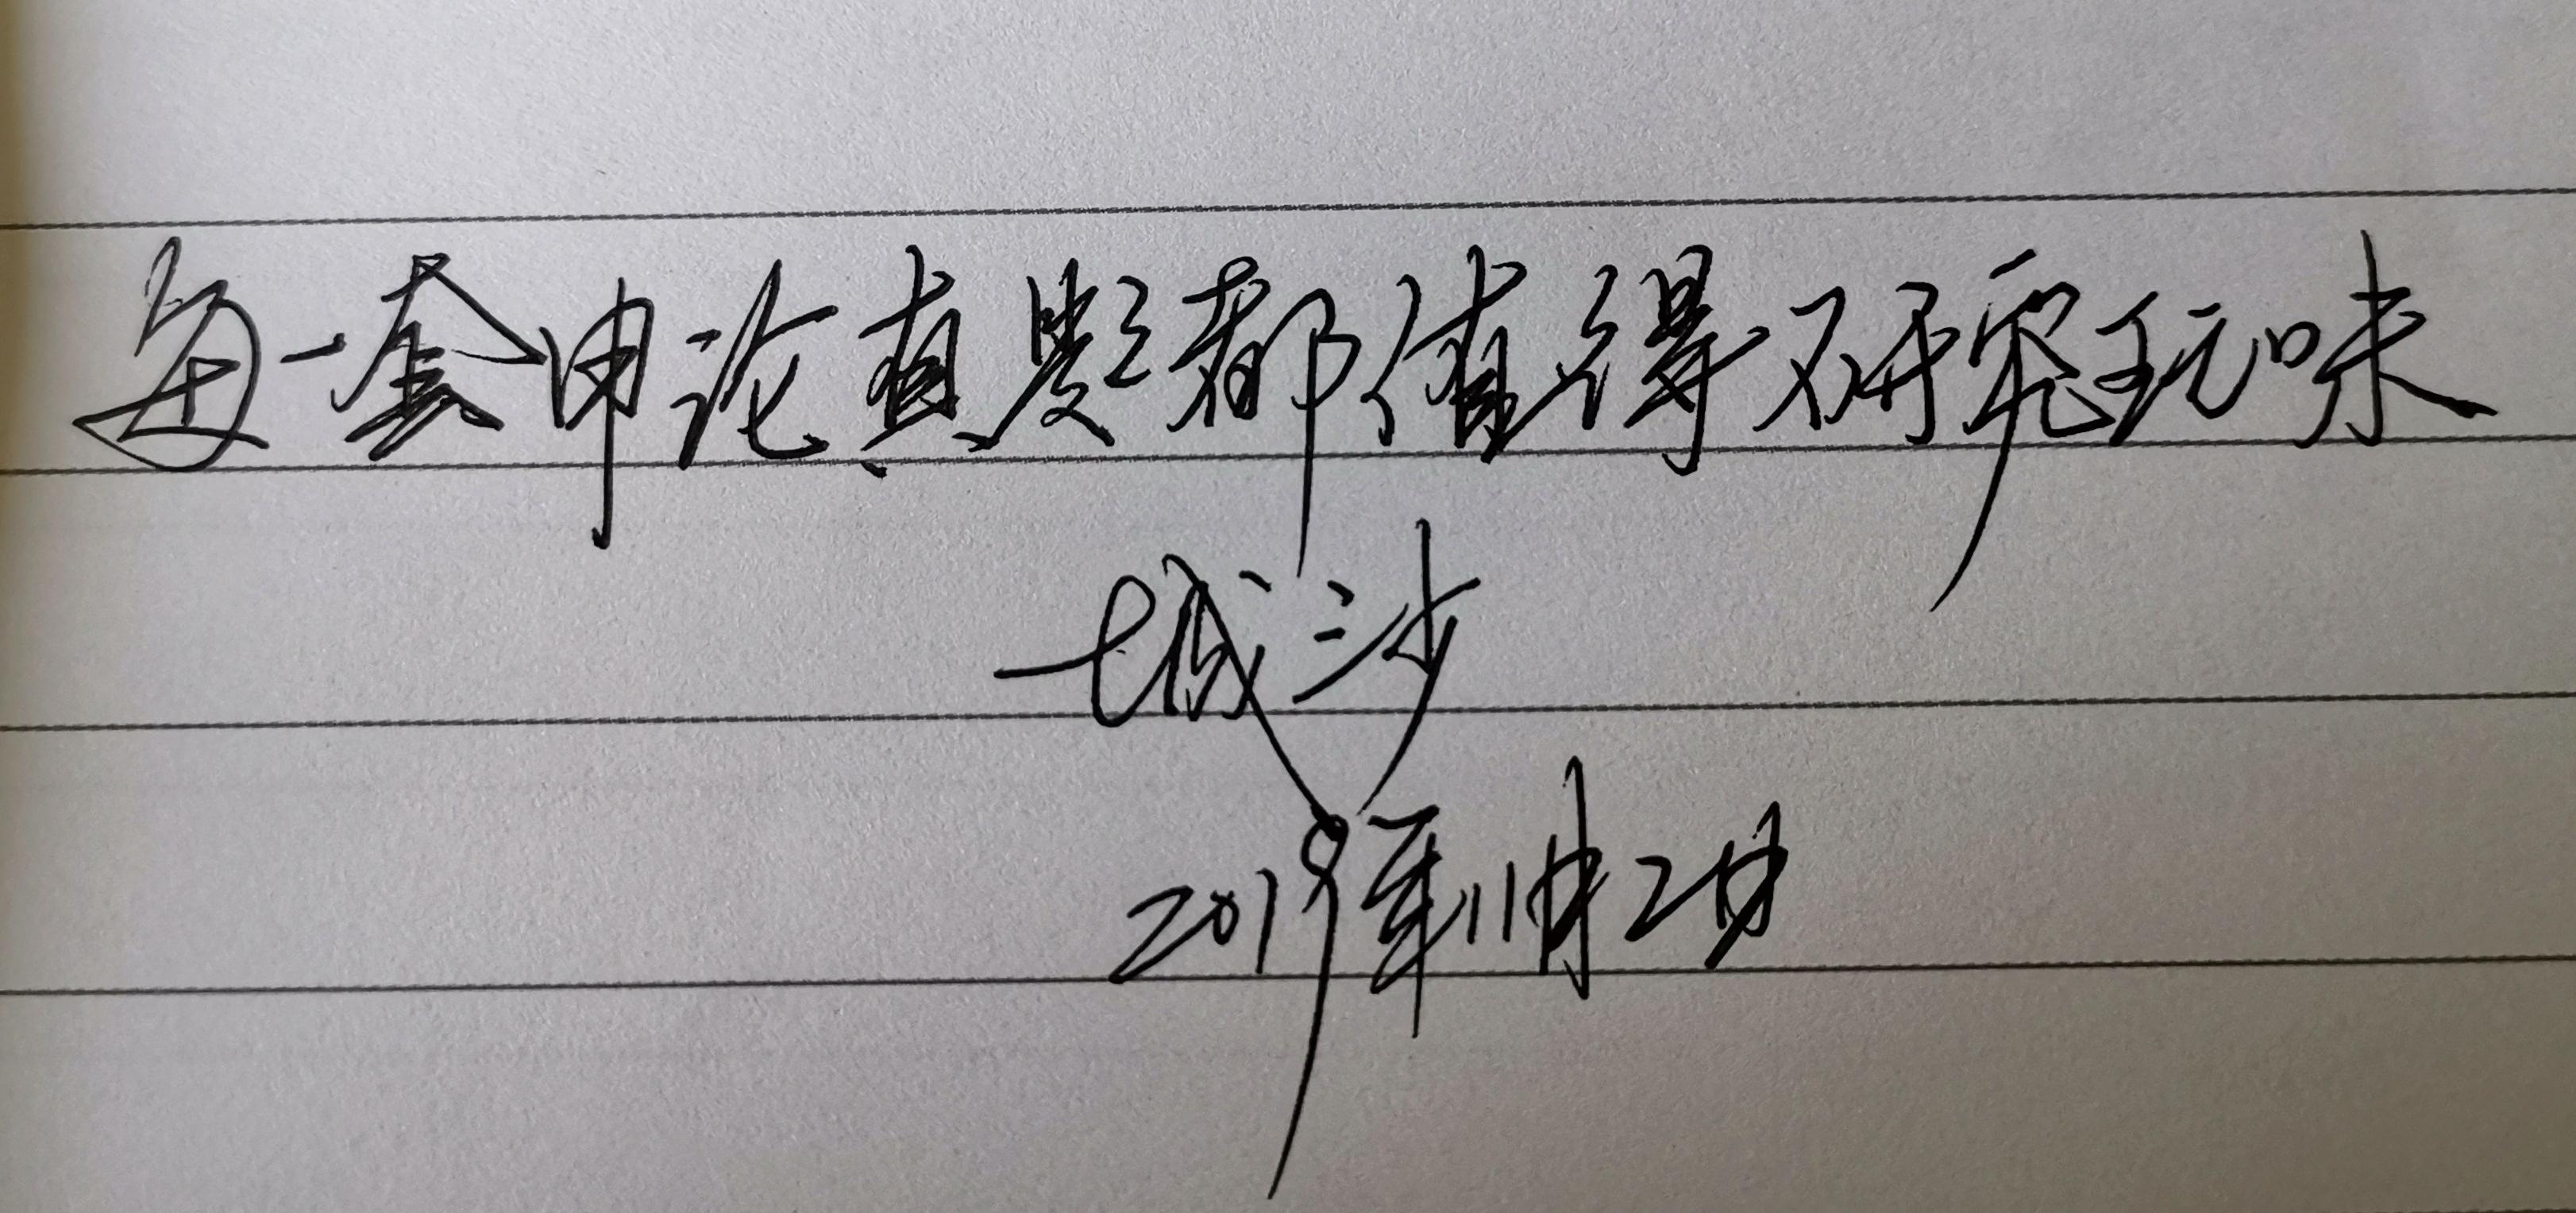 每一套申论真题都值得研究玩味
一城沙
2019年11月2日